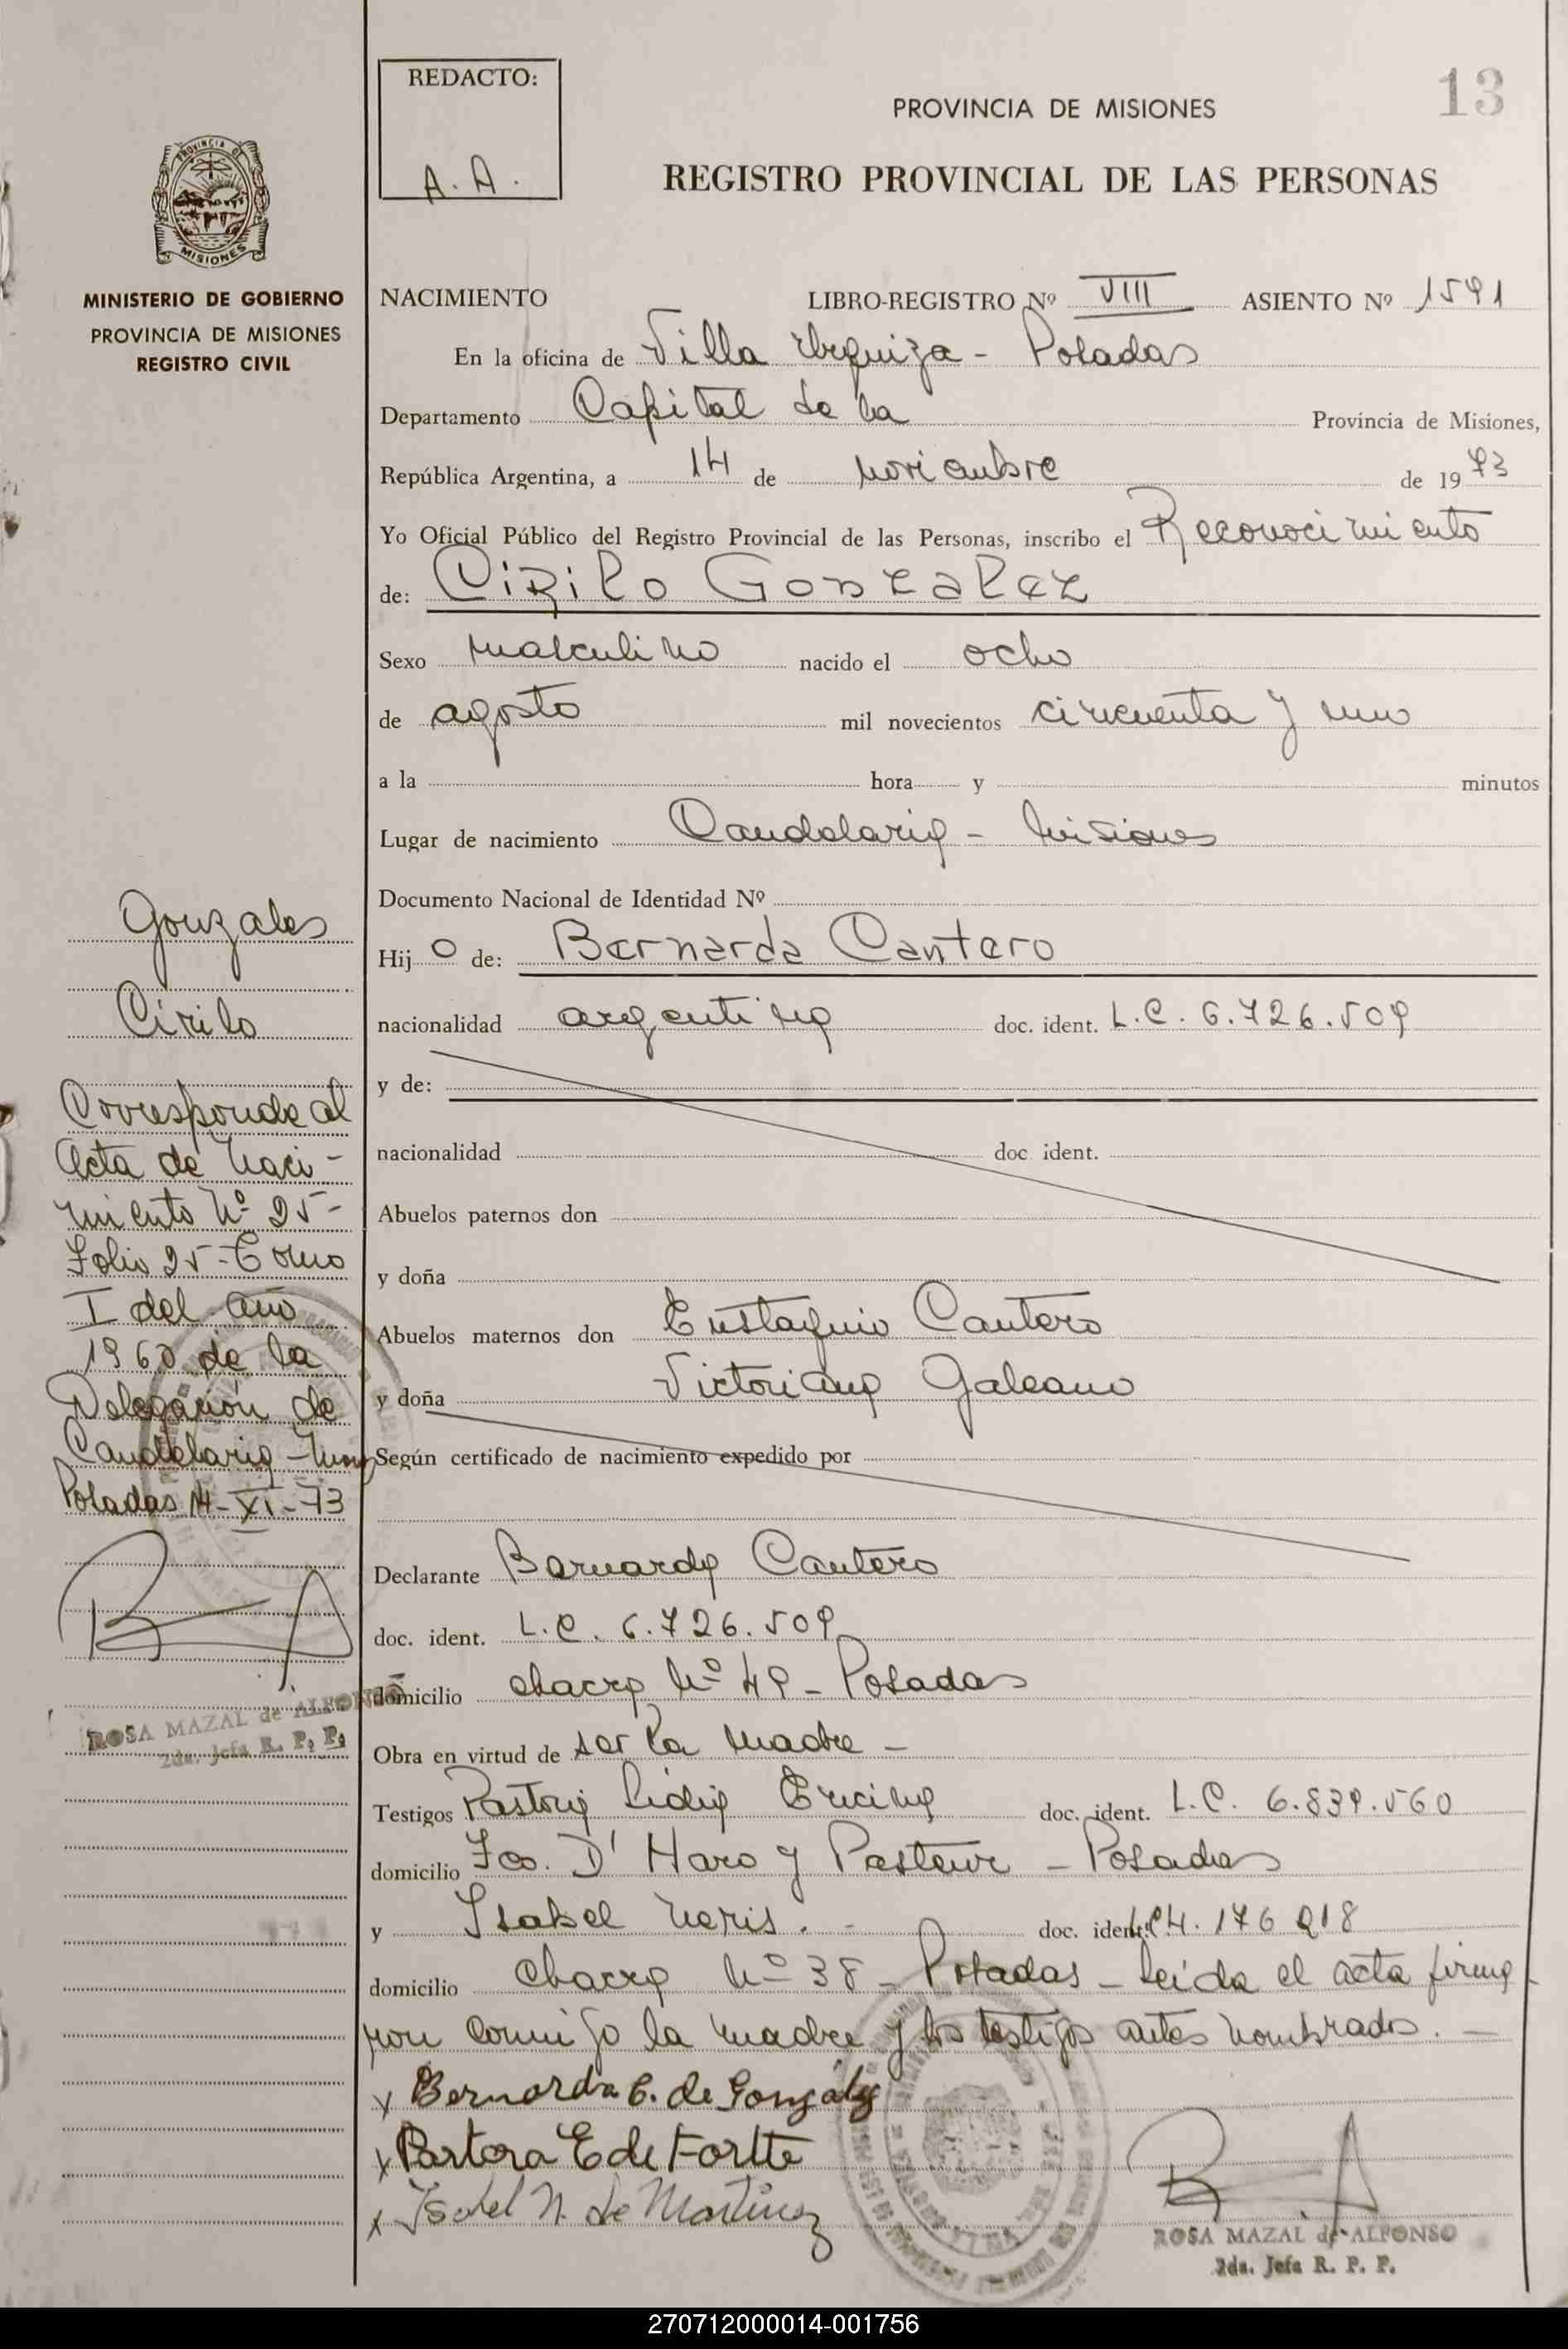 13
REDACTO:
A. A.
PROVINCIA DE MISIONES
REGISTRO PROVINCIAL DE LAS PERSONAS
PROVINCIA DE
MISIONES
MINISTERIO DE GOBIERNO
PROVINCIA DE MISIONES
REGISTRO CIVIL
NACIMIENTO LIBRO-REGISTRO Nº VIII ASIENTO Nº 1591
En la oficina de Villa Urquiza - Posadas
Departamento Capital de la Provincia de Misiones,
República Argentina, a 14 de noviembre de 1973
Yo Oficial Público del Registro Provincial de las Personas, inscribo el Reconocimiento
de: Cirilo Gonzalez
Sexo masculino nacido el ocho
de agosto mil novecientos cincuenta y uno
a la hora y minutos
Lugar de nacimiento Candelaria - Misiones
Documento Nacional de Identidad Nº
Hijo de: Bernarda Cantero
nacionalidad argentina doc. ident. L.C. 6.726.509
y de:
nacionalidad doc. ident.
Abuelos paternos don
y doña
Abuelos maternos don Eustaquio Cantero
y doña Victoriana Galeano
Según certificado de nacimiento expedido por
Declarante Bernarda Cantero
doc. ident. L.C. 6.726.509
domicilio chacra Nº 49 - Posadas
Obra en virtud de ser la madre -
Testigos Pastora Lidia Encina doc. ident. L.C. 6.839.560
domicilio Fco. D' Haro y Pasteur - Posadas
y Isabel Neris. - doc. ident. LC 4.176 218
domicilio chacra Nº 38 - Posadas - Leída el acta firma
ron conmigo la madre y los testigos antes nombrados. -
x Bernarda C. de Gonzalez
x Pastora E de Fortte
x Isabel N. de Martinez
ROSA MAZAL de ALFONSO
2da. Jefa R. P. P.
Gonzales
Cirilo
Corresponde al
Acta de Naci-
miento Nº 25-
Folio 25 - Tomo
I del año
1960 de la
Delegación de
Candelaria -
Posadas 14-XI-73
ROSA MAZAL de ALFONSO
2da. Jefa R. P. P.
270712000014-001756